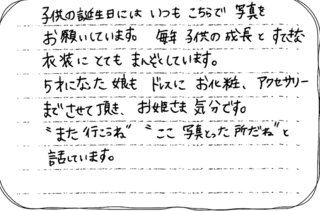 子供の誕生日には いつも こちらで 写真を
お願いしています。 毎年 子供の成長と すてきな
衣装に とても まんぞくしています。
5才になった 娘も ドレスに お化粧、アクセサリー
までさせて頂き、お姫さま 気分です。
"また 行こうね" "ここ 写真とった 所だね" と
話しています。